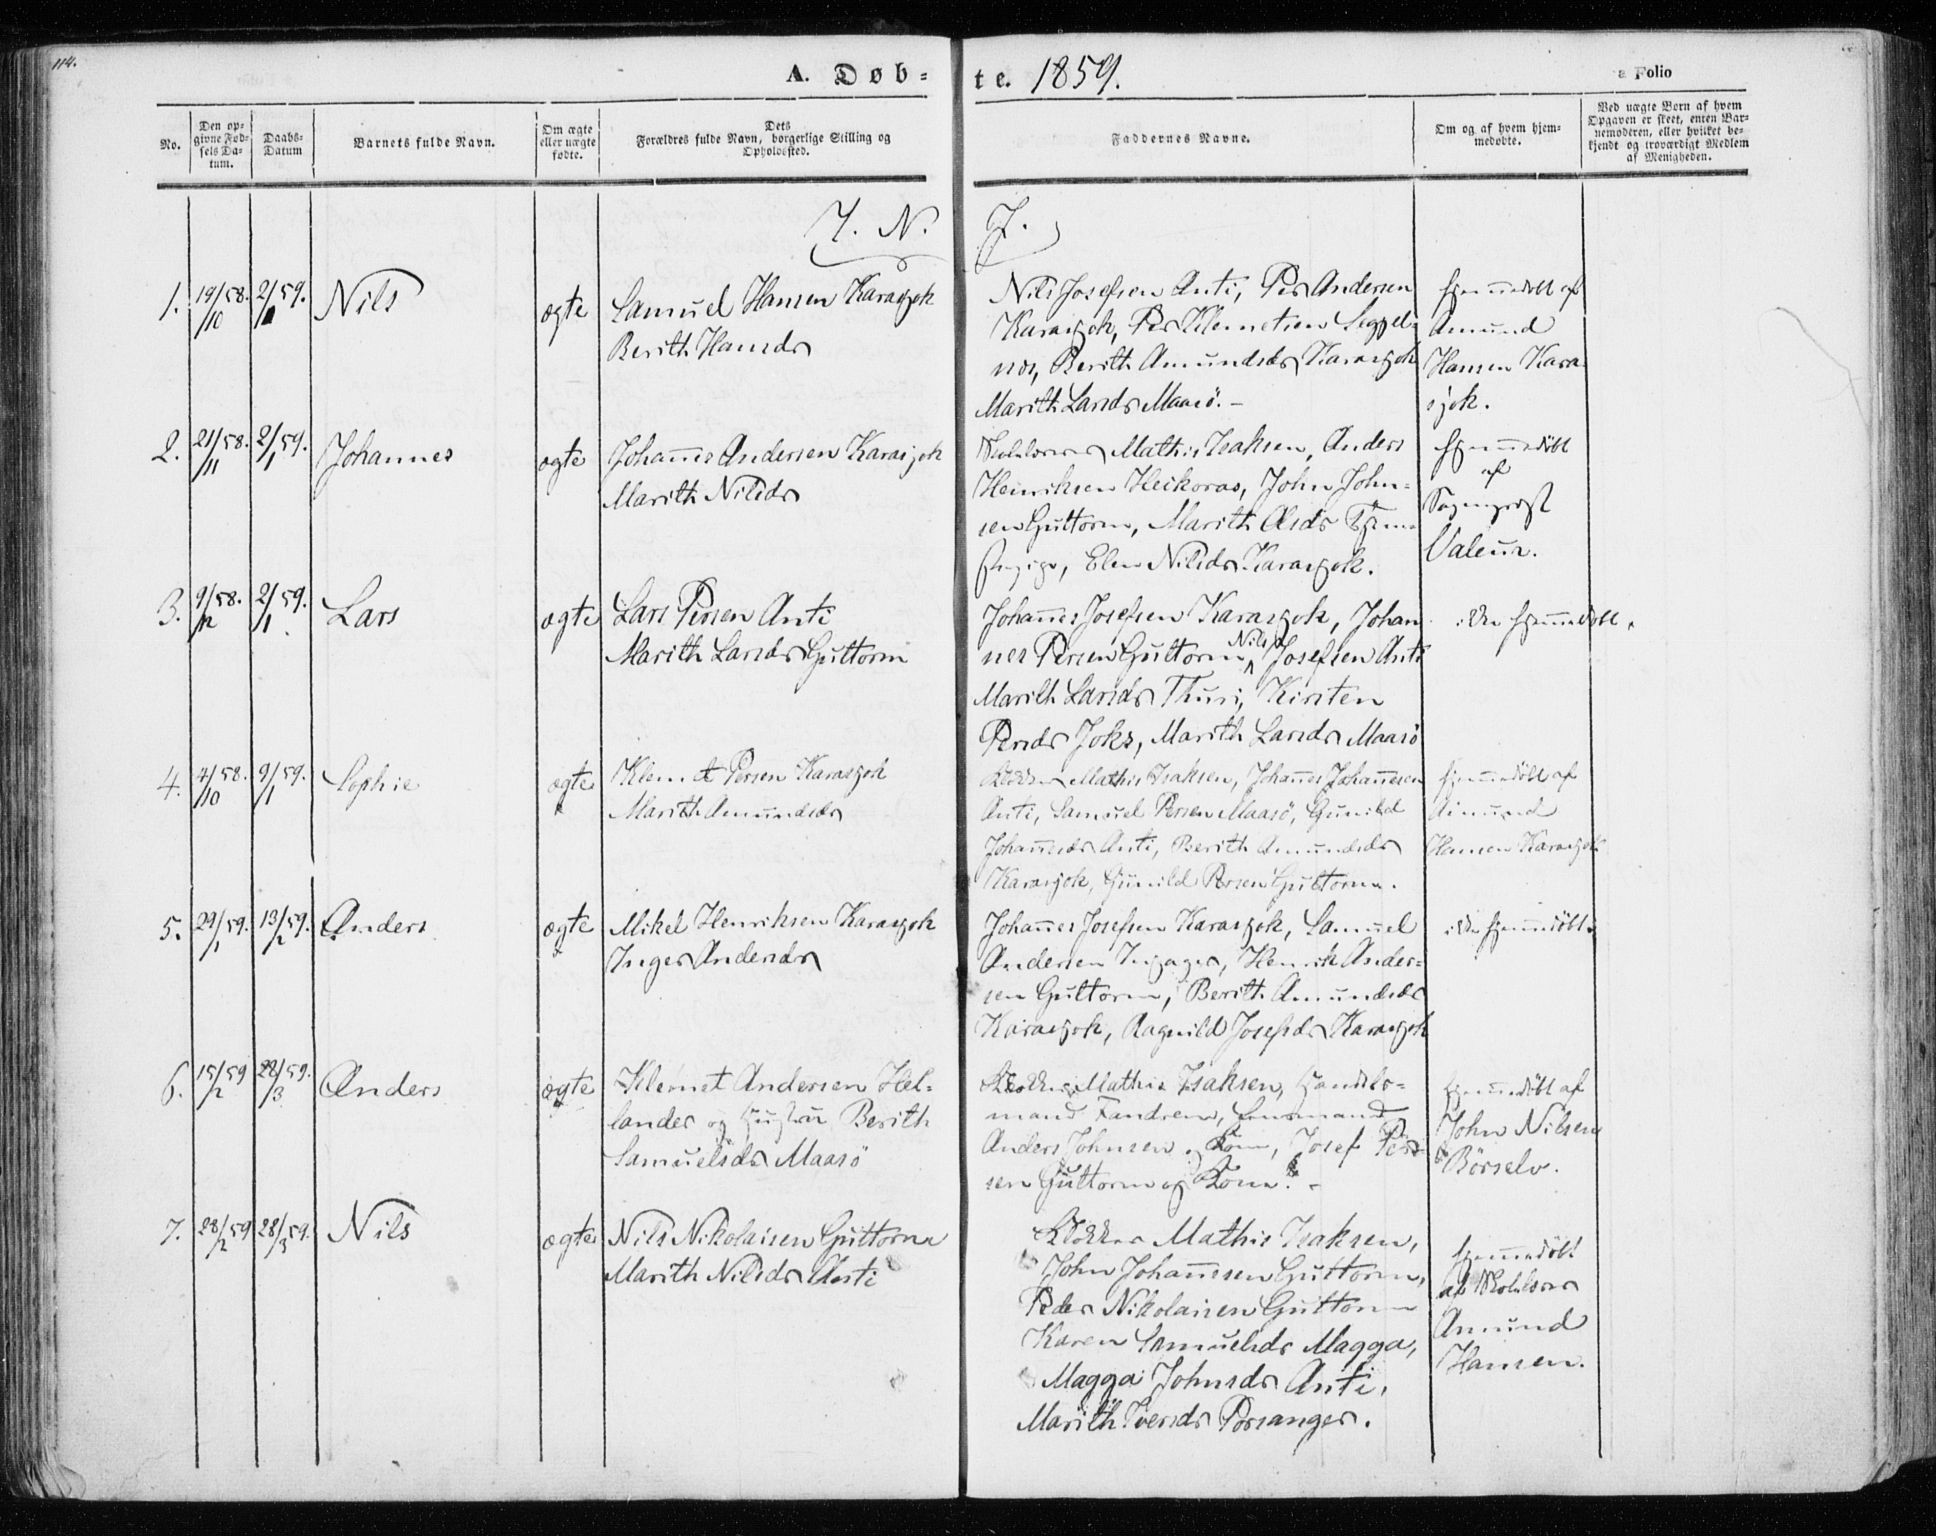 114.
A. Døb-
te. 1859.
a Folio
No.
Den op-
givne Fød-
sels Da-
tum.
Daabs-
Datum
Barnets fulde Navn.
Om ægte
eller uægte
fødte.
Dets
Forældres fulde Navn, borgerlige Stilling og
Opholdssted.
Faddernes Navne.
Om og af hvem hjem-
medøbte.
Ved uægte Børn af hvem
Opgaven er skeet, enten Bar-
nemoderen, eller hvilket be-
kjendt og troværdigt Medlem
af Menigheden.
I. N. J.
1. 19/58. /10 2/59. /1 Nils ægte
Samuel Hansen Karasjok
Berith Hansdr
Nils Josefsen Anti, Per Andersen
Karasjok, Per Klemetsen
Berith Amundsdr Karasjok
Marith Larsdr Maasö. -
hjemmedøbt af
Amund
Hansen Kara-
sjok.
2. 21/58. /11 2/59. /1 Johannes ægte
Johannes Andersen Karasjok
Marith Nilsdr
Mathis Isaksen, Anders
Henriksen Heikoras, John John-
sen Guttorm, Marith
Elen Nilsdr Karasjok.
hjemmedøbt
af
Sognepræst
Valeur.
3. 9/58. /12 2/59. /1 Lars ægte
Lars Persen Anti
Marith Larsdr Guttorm
Johannes Josefsen Karasjok, Johan-
nes Persen Guttorm, Nils Josefsen Anti
Marith Larsdr Thuri, Kirsten
Persdr Joks, Marith Larsdr Maasö
ikke hjemmedøbt.
4. 4/58. /10 9/59. /1 Sophie ægte
Klemet Persen Karasjok
Marith Amundsdr
Klokker Mathis Isaksen, Johannes Johannesen
Anti, Samuel Persen Maasö, Gunild
Johannesdr Anti, Berith Amundsdr
Karasjok, Gunild Persen Guttorm.
hjemmedøbt af
Amund
Hansen Karasjok
5. 29/59. /1 13/59. /2 Anders ægte
Mikel Henriksen Karasjok
Inger Andersdr
Johannes Josefsen Karasjok, Samuel
Andersen Henrik Ander-
sen Guttorm, Berith Amundsdr
Karasjok, Ragnild Josefsdr Karasjok
ikke hjemmedøbt.
6. 15/59 /2 28/59. /3 Anders ægte
Klemet Andersen Hel-
lander og Hustru Berith
Samuelsdr Maasö
Klokker Mathis Isaksen, Handels-
mand Fandrem, Lensmand
Anders Johnsen og Kone, Josef Per-
sen Guttorm og Kone. -
hjemmedøbt af
John Nilsen
Börselv.
7. 28/59 /2 28/59. /3 Nils ægte
Nils Nikolaisen Guttorm
Marith Nilsdr Anti
Klokker Mathis Isaksen,
John Johannesen Guttorm,
Peder Nikolaisen Guttorm
Karen Samuelsdr Magga,
Magga Johnsdr Anti,
Marith Iversdr Porsanger.
hjemmedøbt
af Skolelærer
Amund
Hansen.